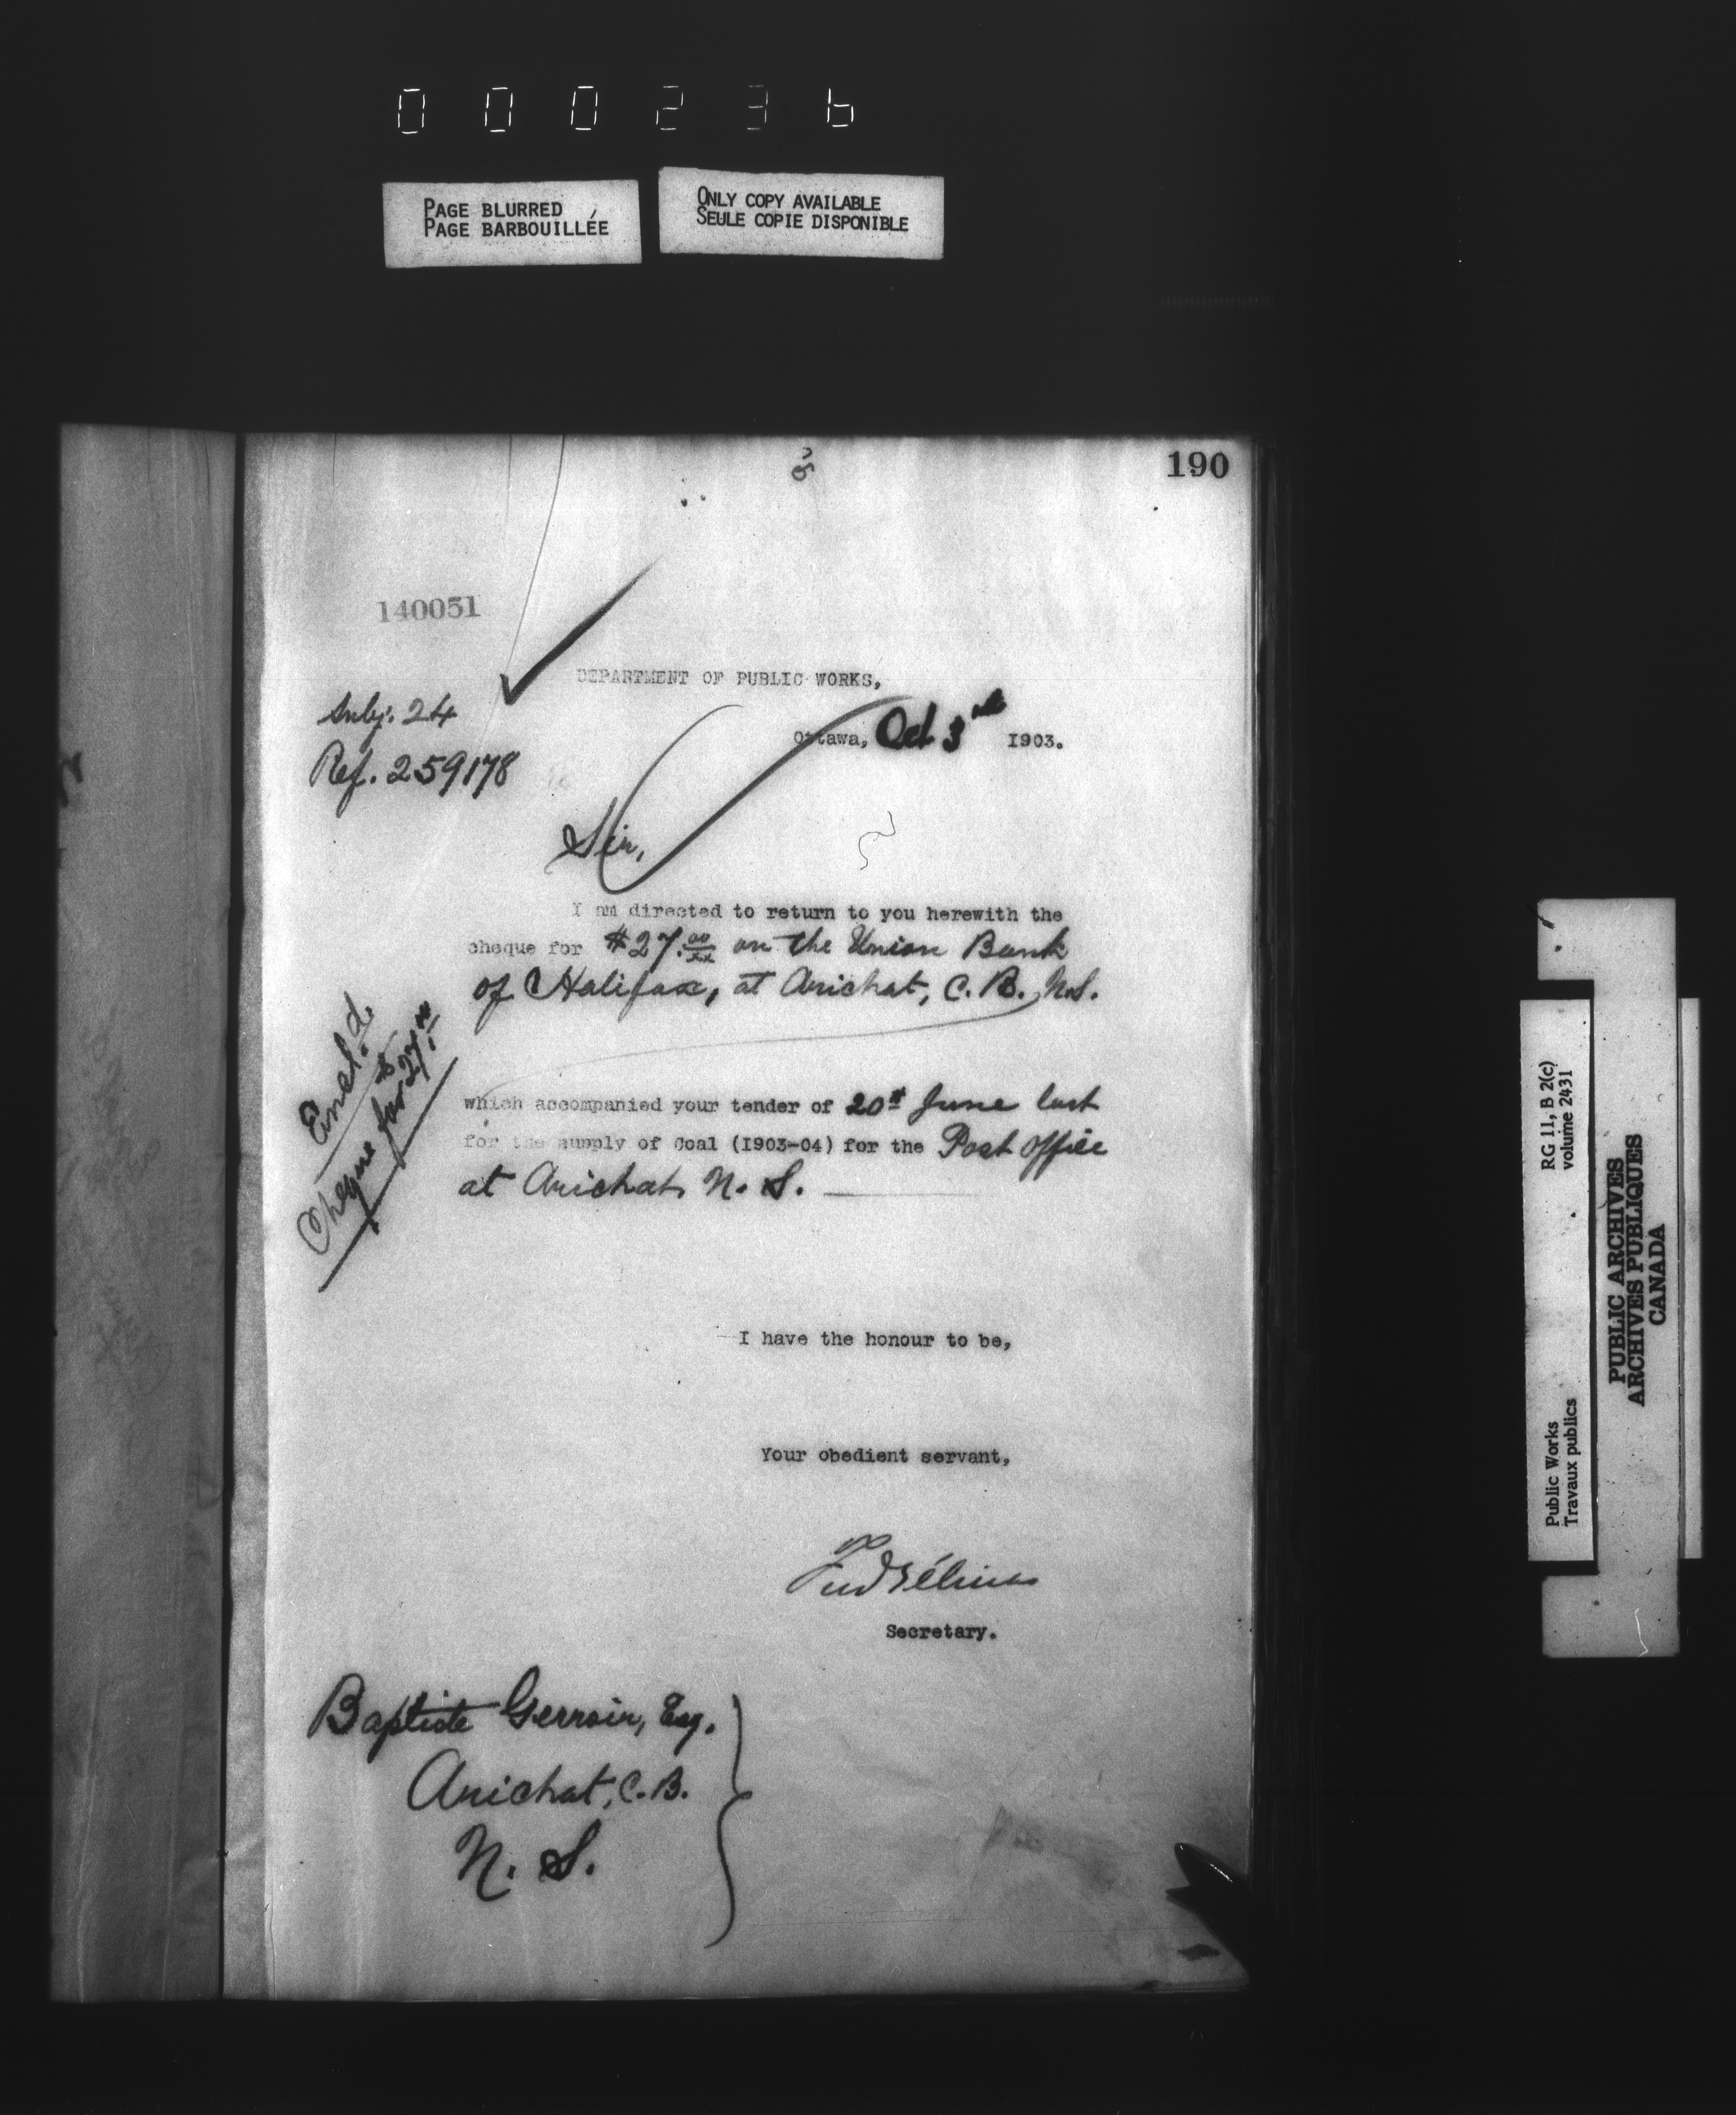 000236
PAGE BLURRED
PAGE BARBOUILLÉE
ONLY COPY AVAILABLE
SEULE COPIE DISPONIBLE
190
140051
DEPARTMENT OF PUBLIC WORKS,
Subj. 24
Ref. 259178
Ottawa, Oct 3rd 1903.
Sir,
I am directed to return to you herewith the
cheque for $27.00/xx on the Union Bank
of Halifax, at Arichat, C. B., N.S.
Encl'd.
Cheque for $27.00
which accompanied your tender of 20th June last
for the supply of Coal (1903-04) for the Post Office
at Arichat, N. S.
I have the honour to be,
Your obedient servant,
Fred Gélinas
Secretary.
Baptiste Gerroir, Esq.
Arichat, C. B.
N. S.
RG 11, B 2(c)
volume 2431
Public Works
Travaux publics
PUBLIC ARCHIVES
ARCHIVES PUBLIQUES
CANADA